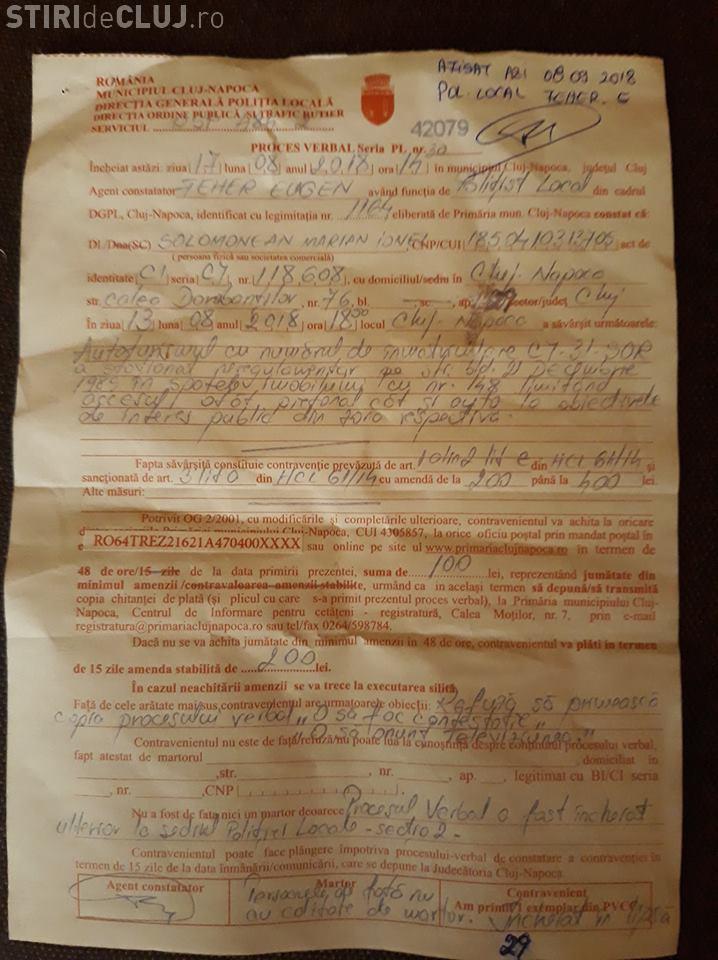 STIRIdeCLUJ.ro
ROMÂNIA
MUNICIPIUL CLUJ-NAPOCA
DIRECȚIA GENERALĂ POLIȚIA LOCALĂ
DIRECȚIA ORDINE PUBLICĂ ȘI TRAFIC RUTIER
SERVICIUL
AFISAT AZI 08 09 2018
POL. LOCAL FEHER E
42079
PROCES VERBAL Seria PL nr. 30
Încheiat astăzi: ziua 17 luna 08 anul 2018 ora 14 în municipiul Cluj-Napoca, județul Cluj
Agent constatator FEHER EUGEN având funcția de Polițist Local din cadrul
DGPL, Cluj-Napoca, identificat cu legitimația nr. 1164 eliberată de Primăria mun. Cluj-Napoca constat că:
Dl/Dna(SC) SOLOMONEAN MARIAN IONEL CNP/CUI act de
( persoana fizică sau societatea comercială)
identitate CI seria CJ, nr. 118608, cu domiciliu/sediu în Cluj-Napoca
str. Calea Dorobanților, nr. 76, bl. - sc. - ap. sector/județ Cluj
În ziua 13 luna 08 anul 2018 ora 18 locul Cluj-Napoca a săvârșit următoarele:
Autoturismul cu numărul de înmatriculare CJ-31-SOR
a staționat neregulamentar pe str. Bd. 21 Decembrie
1989 în spatele imobilului cu nr. 148 limitând
accesul atât pietonal cât și auto la obiectivele
de interes public din zona respectivă.
Fapta săvârșită constituie contravenție prevăzută de art. 1 alin 2 lit e din HCL 61/14 și
sancționată de art. 3 lit a din HCL 61/14 cu amendă de la 200 până la 400 lei.
Alte măsuri:
Potrivit OG 2/2001, cu modificările și completările ulterioare, contravenientul va achita la oricare
Primăriei municipiului Cluj-Napoca, CUI 4305857, la orice oficiu poștal prin mandat poștal în
RO64TREZ21621A470400XXXX sau online pe site ul www.primariaclujnapoca.ro în termen de
48 de ore/15 zile de la data primirii prezentei, suma de 100 lei, reprezentând jumătate din
minimul amenzii /contravaloarea amenzii stabilite, urmând ca în același termen să depună/să transmită
copia chitanței de plată (și plicul cu care s-a primit prezentul proces verbal), la Primăria municipiului Cluj-
Napoca, Centrul de Informare pentru cetățeni - registratură, Calea Moților, nr. 7, prin e-mail
registratura@primariaclujnapoca.ro sau tel/fax 0264/598784.
Dacă nu se va achita jumătate din minimul amenzii în 48 de ore, contravenientul va plăti în termen
de 15 zile amenda stabilită de 200 lei.
În cazul neachitării amenzii se va trece la executarea silită.
Față de cele arătate mai sus contravenientul are următoarele obiecții: Refuză să primească
copia procesului verbal „O să fac contestație"
„O să anunț televiziunea"
Contravenientul nu este de față/refuză/nu poate lua la cunoștință despre conținutul procesului verbal,
fapt atestat de martorul , domiciliat în
,str. , nr. , ap. , legitimat cu BI/CI seria
, nr. , CNP
Nu a fost de față nici un martor deoarece Procesul Verbal a fost încheiat
ulterior la sediul Poliției Locale - secția 2 -
Contravenientul poate face plângere împotriva procesului-verbal de constatare a contravenției în
termen de 15 zile de la data înmânării/comunicării, care se depune la Judecătoria Cluj-Napoca.
Agent constatator
Martor
Persoanele de față nu
au calitate de martor.
Contravenient
Am primit 1 exemplar din PVCC
Încheiat în lipsa
29